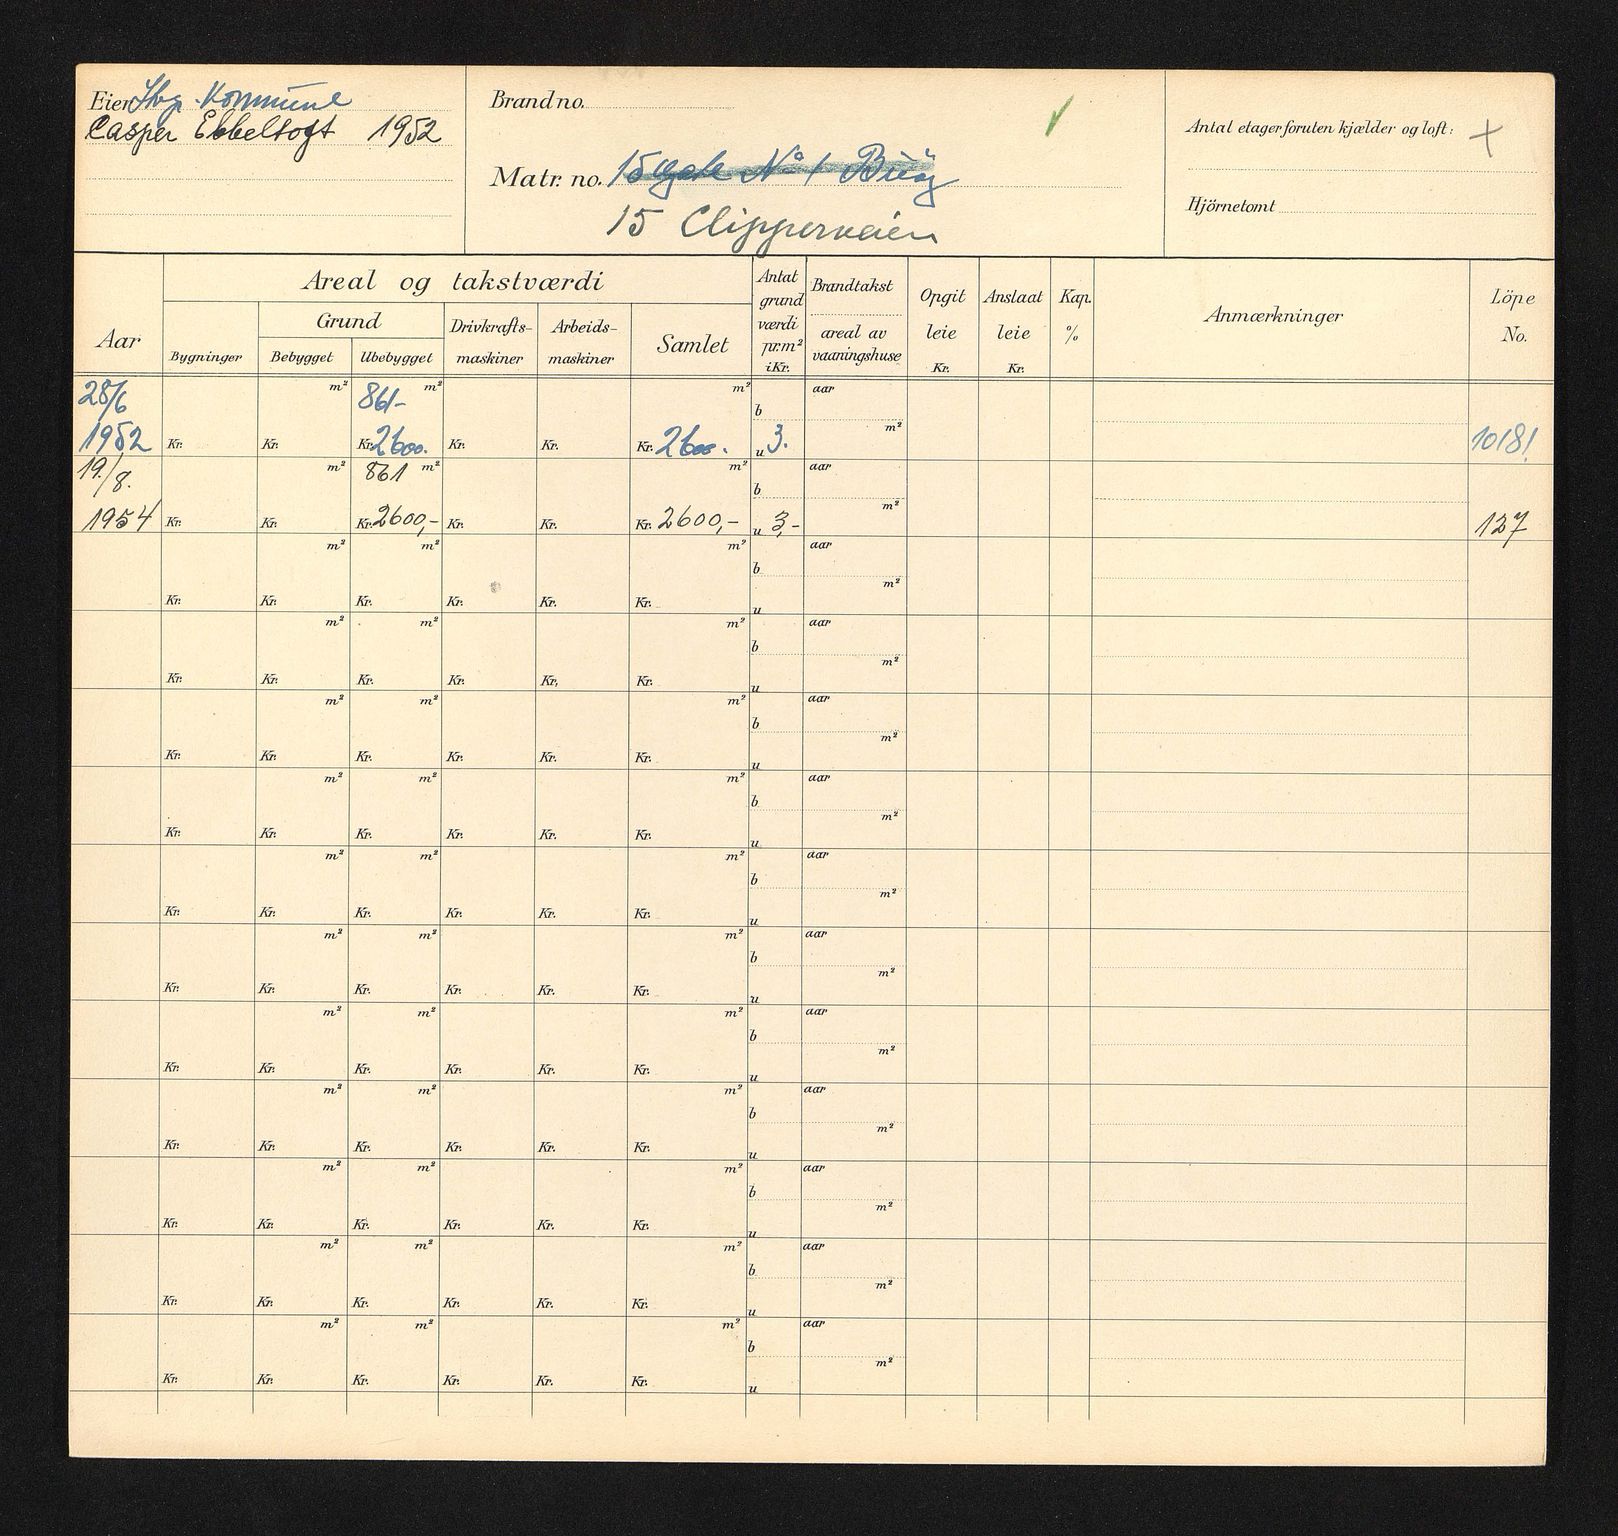 Eier Stvgr. Kommune
Casper Ebbeltoft 1952
Brandno.
Matr. no. 15 Gate No 1 Buøy
15 Clipperveien
Antal etager foruten kjælder og loft: +
Hjörnetomt
Aar
Areal og takstværdi
Bygninger
Grund
Bebygget Ubebygget
Drivkrafts-
maskiner
Arbeids-
maskiner
Samlet
Antat
grund
værdi
pr. m²
i Kr.
Brandtakst
areal av
vaaningshuse
Opgit
leie
Kr.
Anslaat
leie
Kr.
Kap.
%
Anmærkninger
Löpe
No.
28/6 m² 861- m² m² b aar
1952 Kr. Kr. Kr. 2600. Kr. Kr. Kr. 2600. u 3. m² 1018!
19./8. m² 861 m² m² b aar
1954 Kr. Kr. Kr. 2600,- Kr. Kr. Kr. 2600,- u 3,- m² 127
m² m² m² b aar
Kr. Kr. Kr. Kr. Kr. Kr. u m²
m² m² m² b aar
Kr. Kr. Kr. Kr. Kr. Kr. u m²
m² m² m² b aar
Kr. Kr. Kr. Kr. Kr. Kr. u m²
m² m² m² b aar
Kr. Kr. Kr. Kr. Kr. Kr. u m²
m² m² m² b aar
Kr. Kr. Kr. Kr. Kr. Kr. u m²
m² m² m² b aar
Kr. Kr. Kr. Kr. Kr. Kr. u m²
m² m² m² b aar
Kr. Kr. Kr. Kr. Kr. Kr. u m²
m² m² m² b aar
Kr. Kr. Kr. Kr. Kr. Kr. u m²
m² m² m² b aar
Kr. Kr. Kr. Kr. Kr. Kr. u m²
m² m² m² b aar
Kr. Kr. Kr. Kr. Kr. Kr. u m²
m² m² m² b aar
Kr. Kr. Kr. Kr. Kr. Kr. u m²